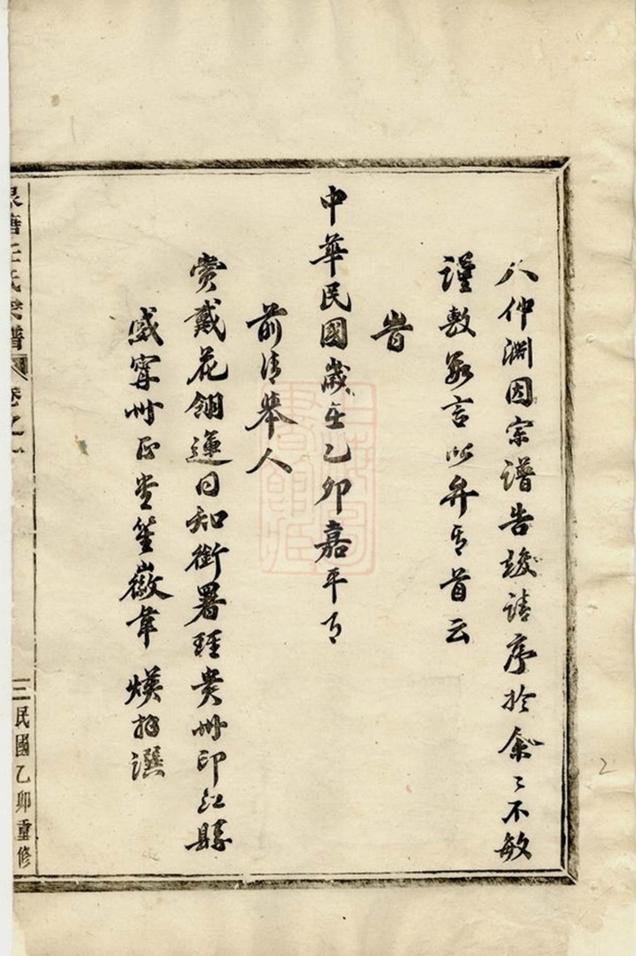 人仲淵因宗譜告竣請序於余〻不敏
謹敷數言以弁其首云
旹
中華民國歲在乙卯嘉平月
前清舉人
賞戴花翎運同知銜署理貴州印江縣
威寧州正堂笙徽韋煐拜譔
氏宗譜
卷之一
三
民國乙卯重修
2